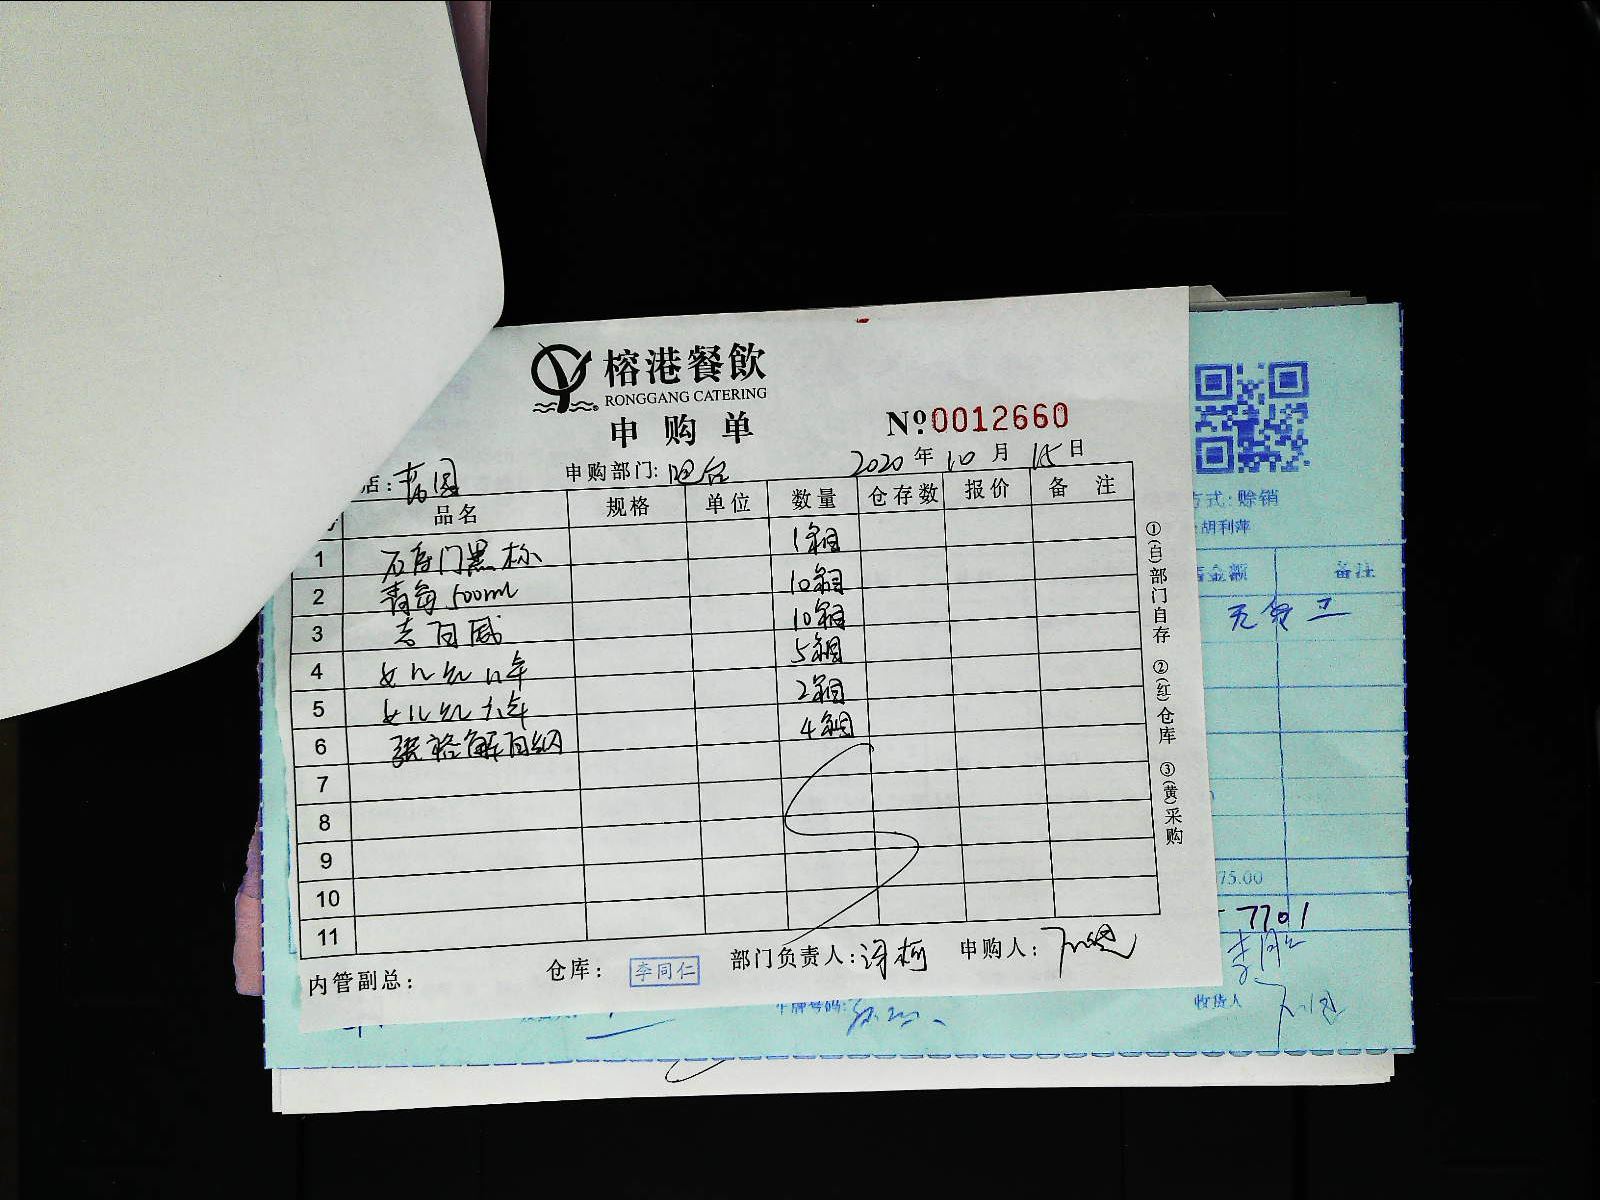 榕港餐飲
RONGGANG CATERING
申购单
Nº0012660
店:
申购部门: 吧台
2020年10月15日
品名 规格 单位 数量 仓存数 报价 备注
1 石库门黑标 1箱
2 青岛500ml 10箱
3 吉百威 10箱
4 女儿红八年 5箱
5 女儿红六年 2箱
6 张裕解百纳 4箱
7
8
9
10
11
内管副总:
仓库: 李同仁
部门负责人:
申购人:
①(白)部门自存 ②(红)仓库 ③(黄)采购
方式: 赊销
胡利萍
金额 备注
75.00
7701
车牌号码:
收货人